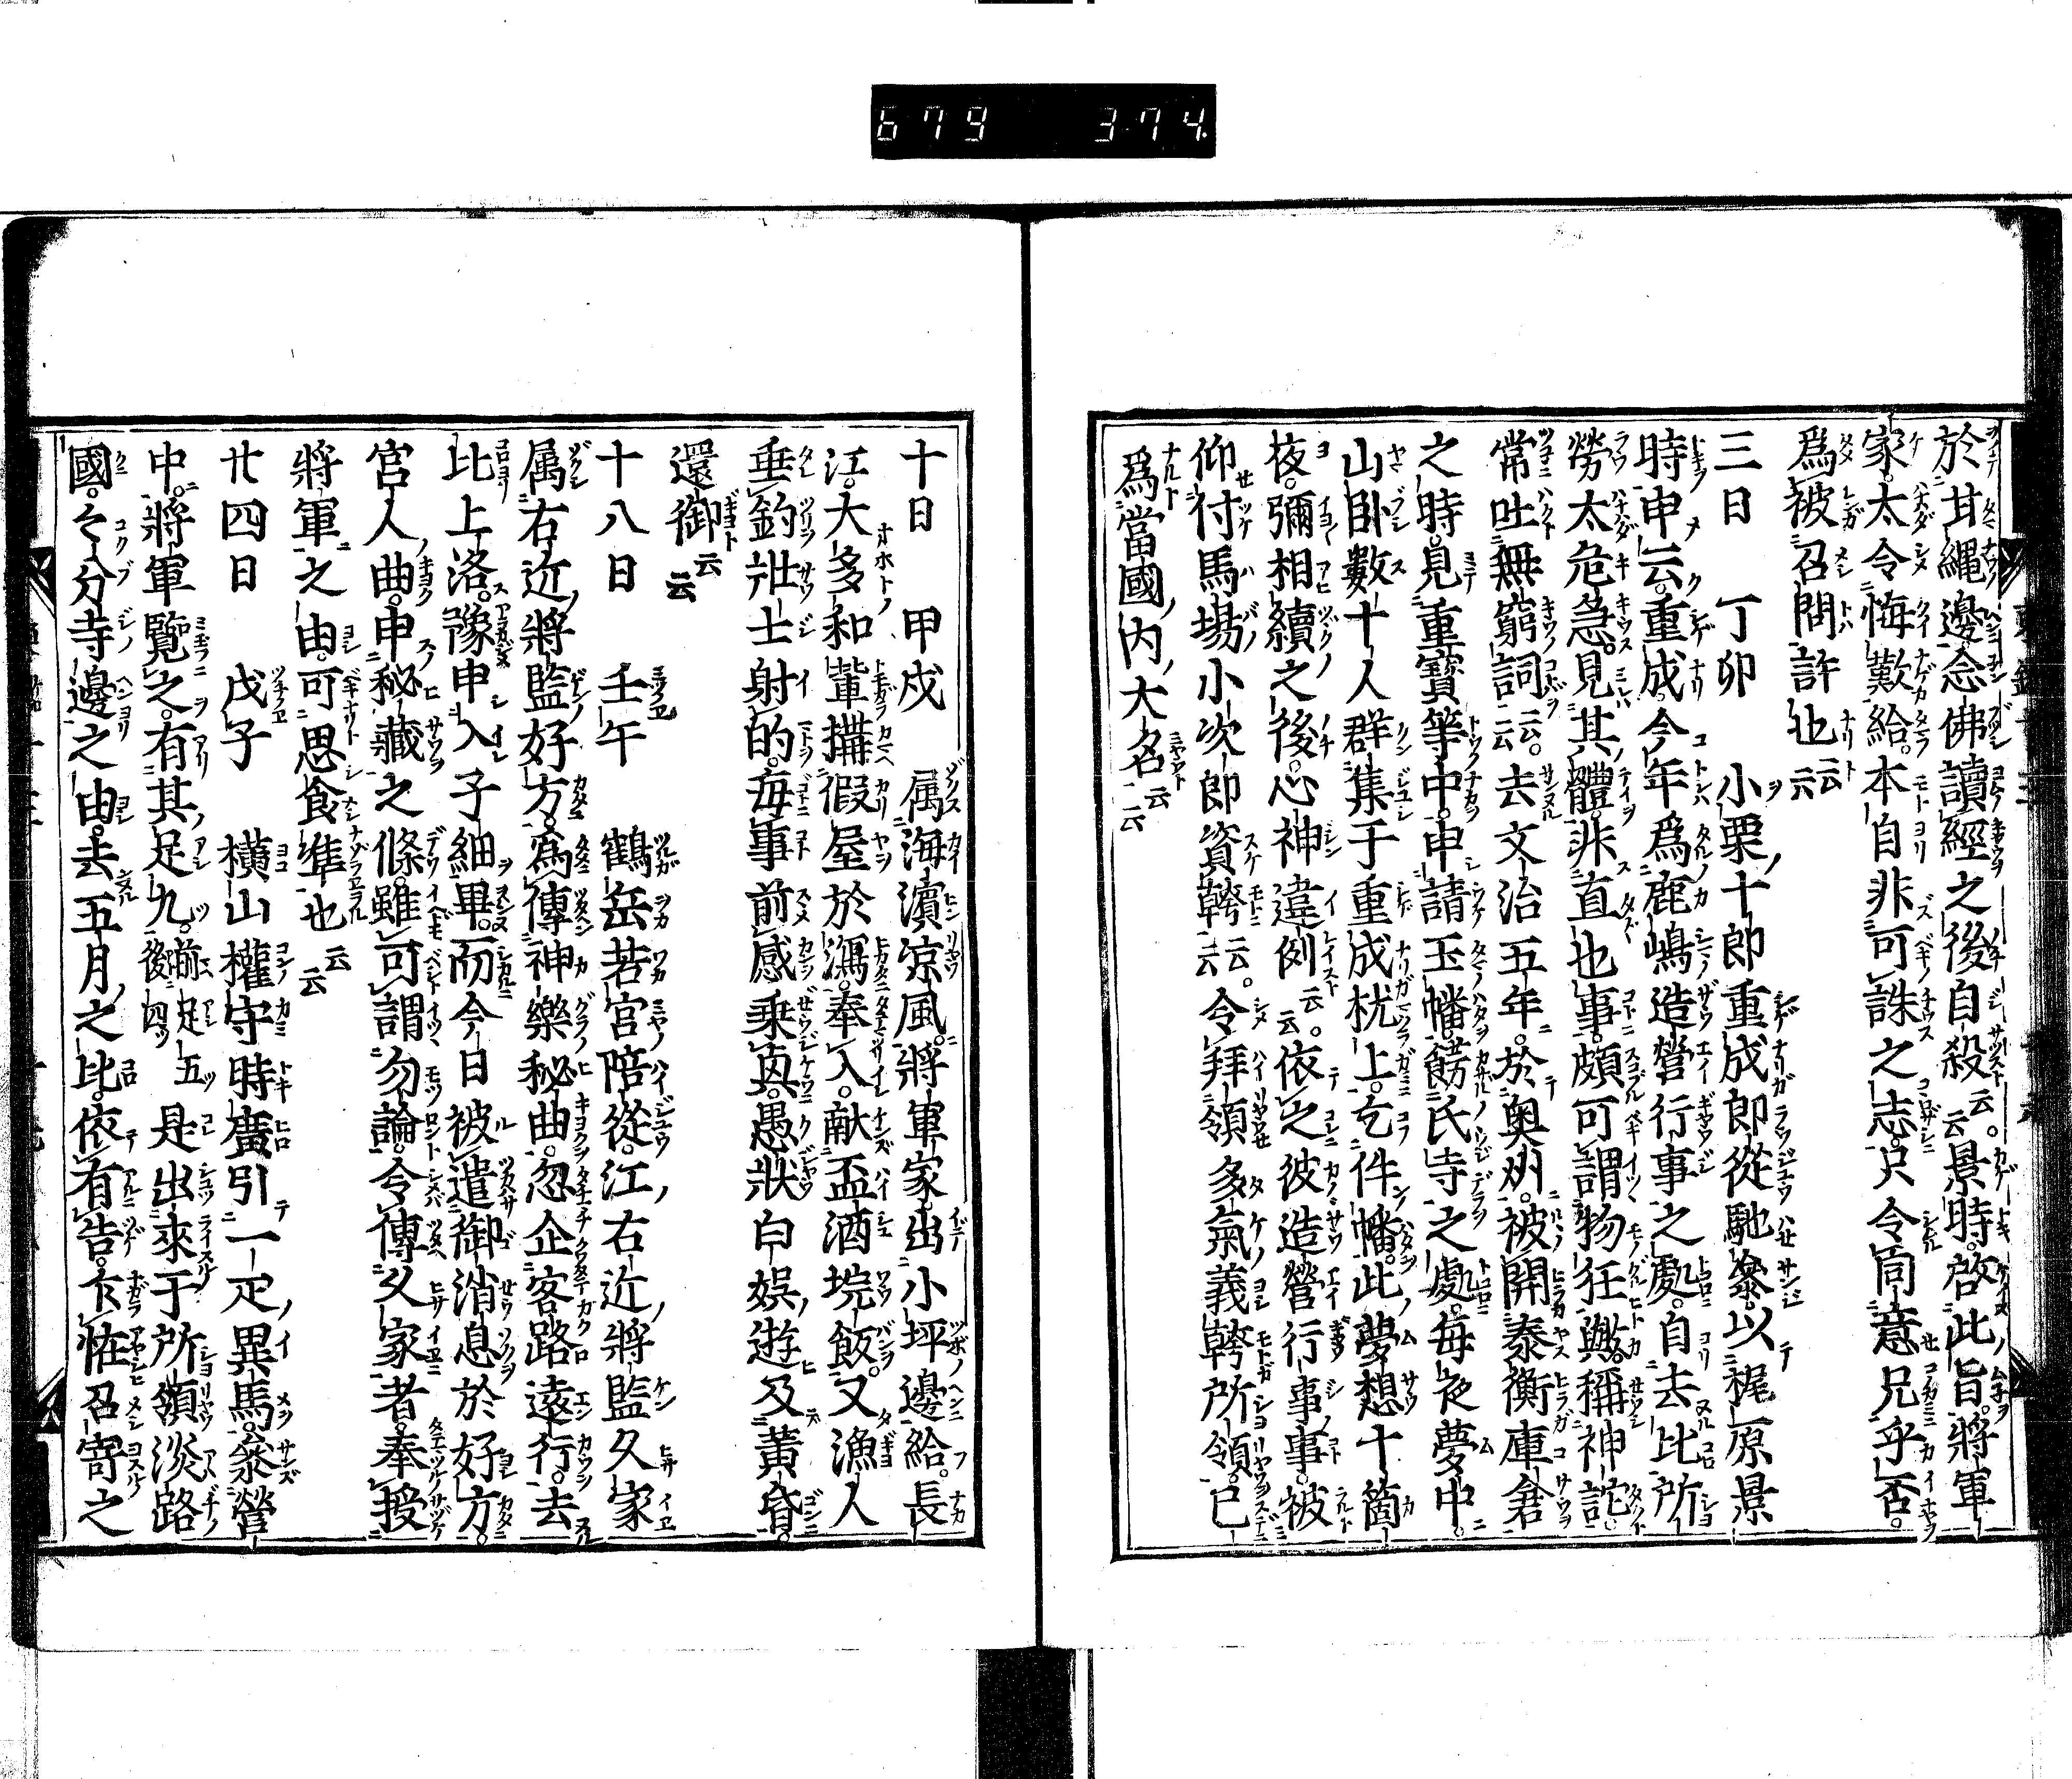 679 374
於甘縄邊念佛讀經之後自殺云云。景時。啓此旨。將軍
家。太令悔歎給。本自非可誅之志。只令同意兄乎否。
爲被召問許也云云
三日 丁卯 小栗十郎重成郎從馳參。以梶原景
時申云。重成。今年爲鹿嶋造營行事之處。自去比所
勞太危急。見其體。非直也事。頗可謂物狂歟。稱神詫。
常吐無窮詞云云。去文治五年。於奥州。被開泰衡庫倉
之時。見重寳等中。申請玉幡。餝氏寺之處。毎夜夢中。
山臥數十人群集于重成枕上。乞件幡。此夢想十箇
夜。彌相續之後。心神違例云云。依之彼造營行事事。被
仰付馬塲小次郎資幹云云。令拜領多氣義幹所領。已
爲當國内大名云云
十日 甲戌 属海濱凉風。將軍家。出小坪邊給。長
江。大多和輩搆假屋於潟。奉入。献盃酒垸飯。又漁人
垂釣。壯士射的。毎事前感乗興。愚狀白娯遊及黄昏。
還御云云
十八日 壬午 鶴岳若宮陪從。江右近將監久家
属右近將監好方。爲傳神樂秘曲。忽企客路遠行。去
比上洛。豫申入子細畢。而今日被遣御消息於好方。
宮人曲。申秘藏之條。雖可謂勿論。令傳久家者。奉授
將軍之由。可思食准也云云
廿四日 戊子 横山權守時廣引一疋異馬。參營
中。將軍覽之。有其足九。前足五後足四 是出來于所領淡路
國。々分寺邊之由。去五月之比。依有告。乍恠召寄之